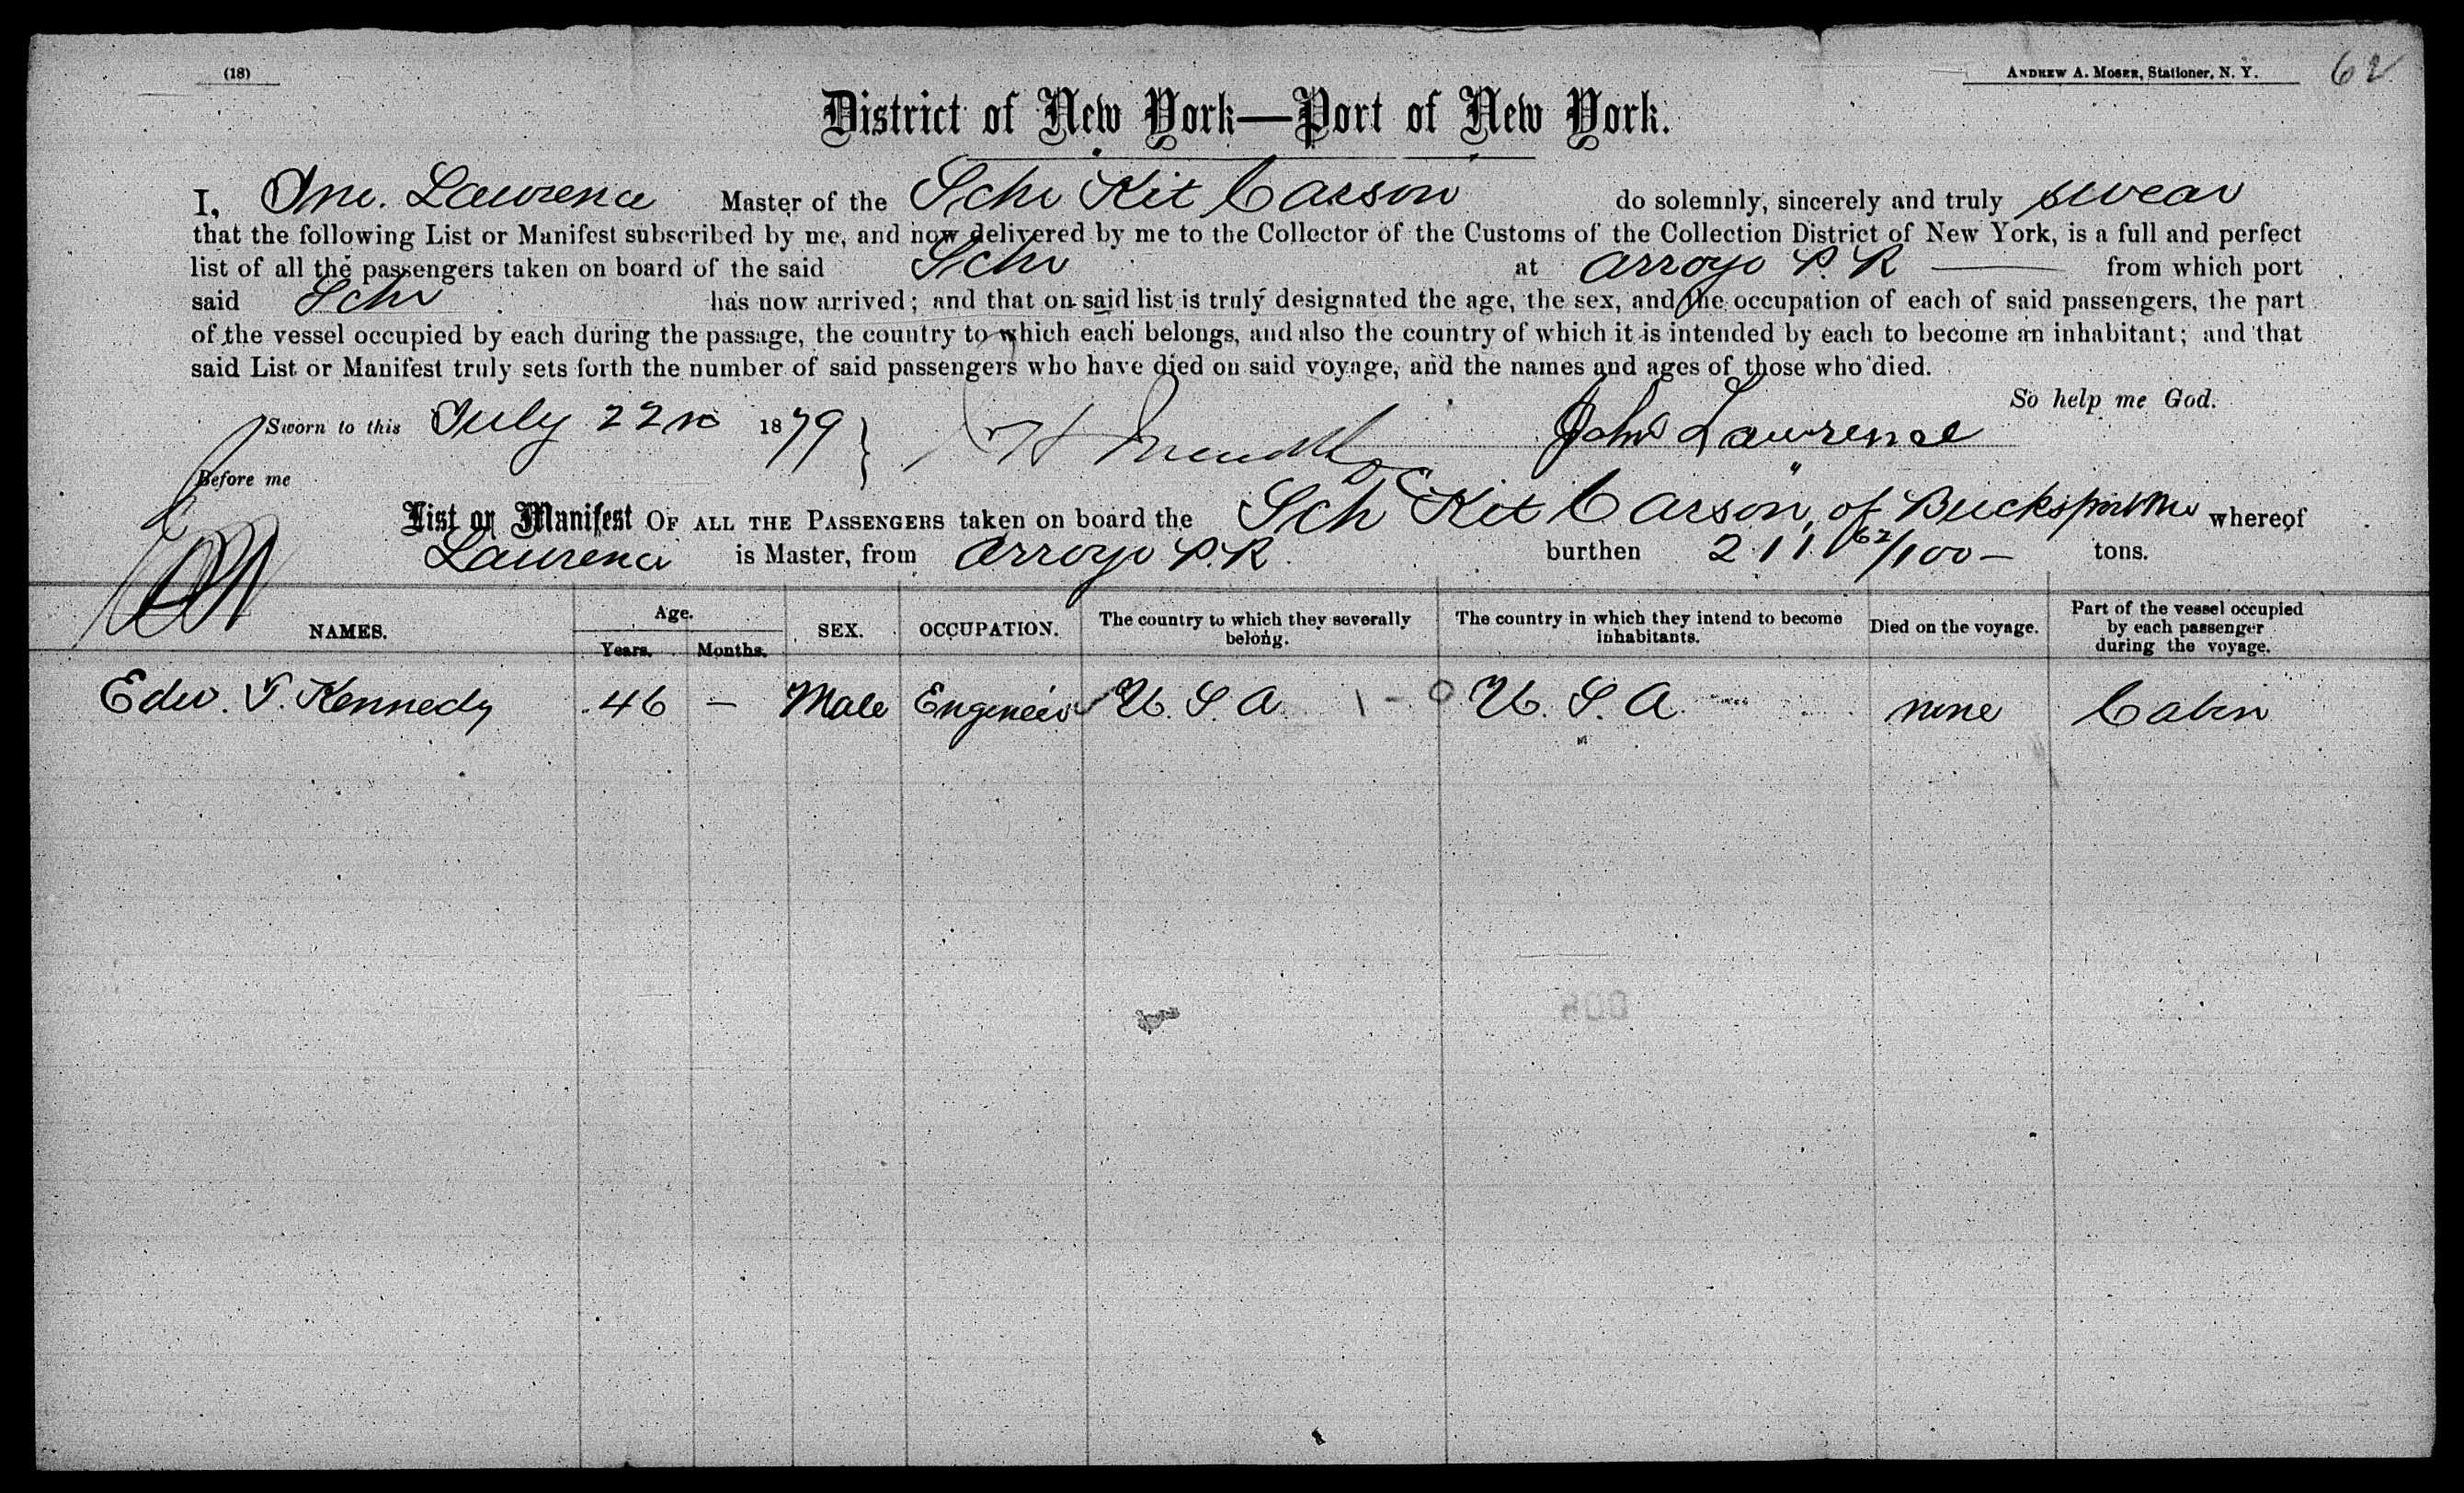 (18)
ANDREW A. MOSER, Stationer, N. Y. 62
District of New York—Port of New York.
I, Jno. Lawrence Master of the Schr Kit Carson do solemnly, sincerely and truly swear
that the following List or Manifest subscribed by me, and now delivered by me to the Collector of the Customs of the Collection District of New York, is a full and perfect
list of all the passengers taken on board of the said Schr at Arroyo P. R — from which port
said Schr has now arrived; and that on said list is truly designated the age, the sex, and the occupation of each of said passengers, the part
of the vessel occupied by each during the passage, the country to which each belongs, and also the country of which it is intended by each to become an inhabitant; and that
said List or Manifest truly sets forth the number of said passengers who have died on said voyage, and the names and ages of those who died.
So help me God.
Sworn to this July 22nd 1879 } John Lawrence
Before me
List or Manifest OF ALL THE PASSENGERS taken on board the Sch "Kit Carson", of Bucksport Me whereof
Lawrence is Master, from Arroyo P.R. burthen 211 62/100 — tons.
NAMES. Age. Years. Months. SEX. OCCUPATION. The country to which they severally belong. The country in which they intend to become inhabitants. Died on the voyage. Part of the vessel occupied by each passenger during the voyage.
Edw. Kennedy 46 — Male Engineer U. S. A. 1 - 0 U. S. A. none Cabin